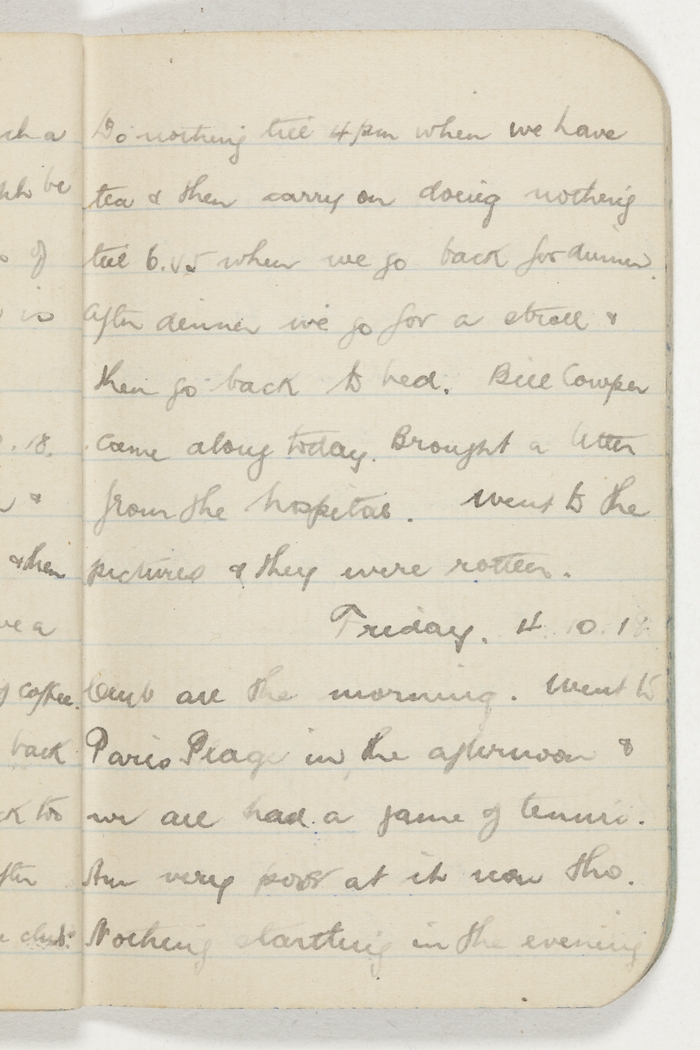 Do nothing till 4 pm when we have
tea & then carry on doing nothing
till 6.45 when we go back for dinner.
After dinner we go for a stroll &
then go back to bed. Bill Cowper
came along today. Brought a letter
from the hospital. Went to the
pictures & they were rotten.
Friday. 4.10.18
Club all the morning. Went to
Paris Plage in the afternoon &
we all had a game of tennis.
Am very poor at it now tho.
Nothing startling in the evening